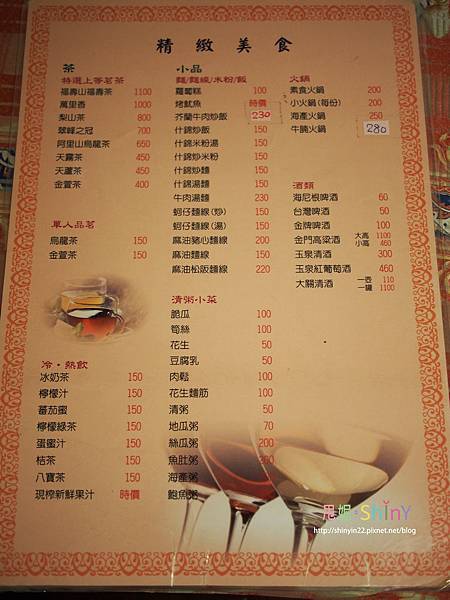 精緻美食
茶
特選上等茗茶
福壽山福壽茶 1100
萬里香 1000
梨山茶 800
翠峰之冠 700
阿里山烏龍茶 650
天霧茶 450
天蘆茶 450
金萱茶 400
單人品茗
烏龍茶 150
金萱茶 150
冷・熱飲
冰奶茶 150
檸檬汁 150
蕃茄蜜 150
檸檬綠茶 150
蛋蜜汁 150
桔茶 150
八寶茶 150
現榨新鮮果汁 時價
小品
麵/麵線/米粉/飯
蘿蔔糕 100
烤魷魚 時價
芥蘭牛肉炒飯 230
什錦炒飯 150
什錦米粉湯 150
什錦炒米粉 150
什錦炒麵 150
什錦湯麵 150
牛肉湯麵 230
蚵仔麵線(炒) 150
蚵仔麵線(湯) 150
麻油豬心麵線 200
麻油麵線 150
麻油松阪麵線 220
清粥小菜
脆瓜 100
筍絲 100
花生 50
豆腐乳 50
肉鬆 100
花生麵筋 100
清粥 50
地瓜粥 70
絲瓜粥 200
魚肚粥
海產粥
鮑魚粥
火鍋
素食火鍋 200
小火鍋(每份) 200
海產火鍋 250
牛腩火鍋 280
酒類
海尼根啤酒 60
台灣啤酒 50
金牌啤酒 100
金門高粱酒 大高 1100
小高 460
玉泉清酒 300
玉泉紅葡萄酒 460
大關清酒 一壺 110
一罐 110
思妮ShinY
http://shinyin22.pixnet.net/blog